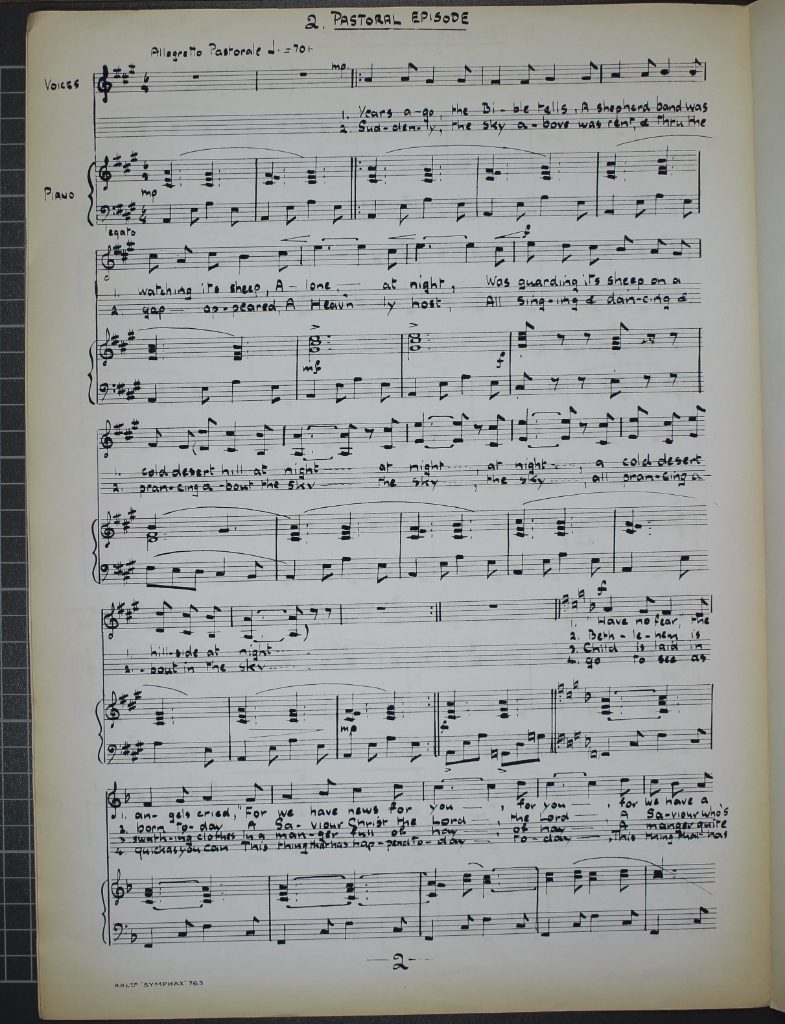 2. PASTORAL EPISODE
Allegretto Pastorale ♩. = 70+
mp.
VOICES
1. Years a-go, the Bi-ble tells, A shepherd band was
2. Sud-den-ly, the sky a-bove was rent, & thru the
PIANO
mp
legato
f
1. watching its sheep, A-lone, at night, Was guarding its sheep on a
2. gap ap-peared, A Heav'n ly host, All sing-ing & dan-cing &
mf
f
1. cold desert hill at night at night, at night, a cold desert
2. pran-cing a-bout the sky the sky, the sky, all pran-cing a
f
1. hill-side at night
2. -bout in the sky
1. "Have no fear," the
2. Beth-le-hem is
3. Child is laid in
4. go to see as
mp
f
1. an-gels cried, "For we have news for you, for you, for we have a
2. born to-day A Sa-viour Christ the Lord, the Lord A Sa-viour who's
3. swath-ing clothes in a man-ger full of hay, of hay A manger quite
4. quick as you can This thing that has hap-pened to-day to-day, This thing that has
—2—
H.H.LTD 'SYMPHAX' 763